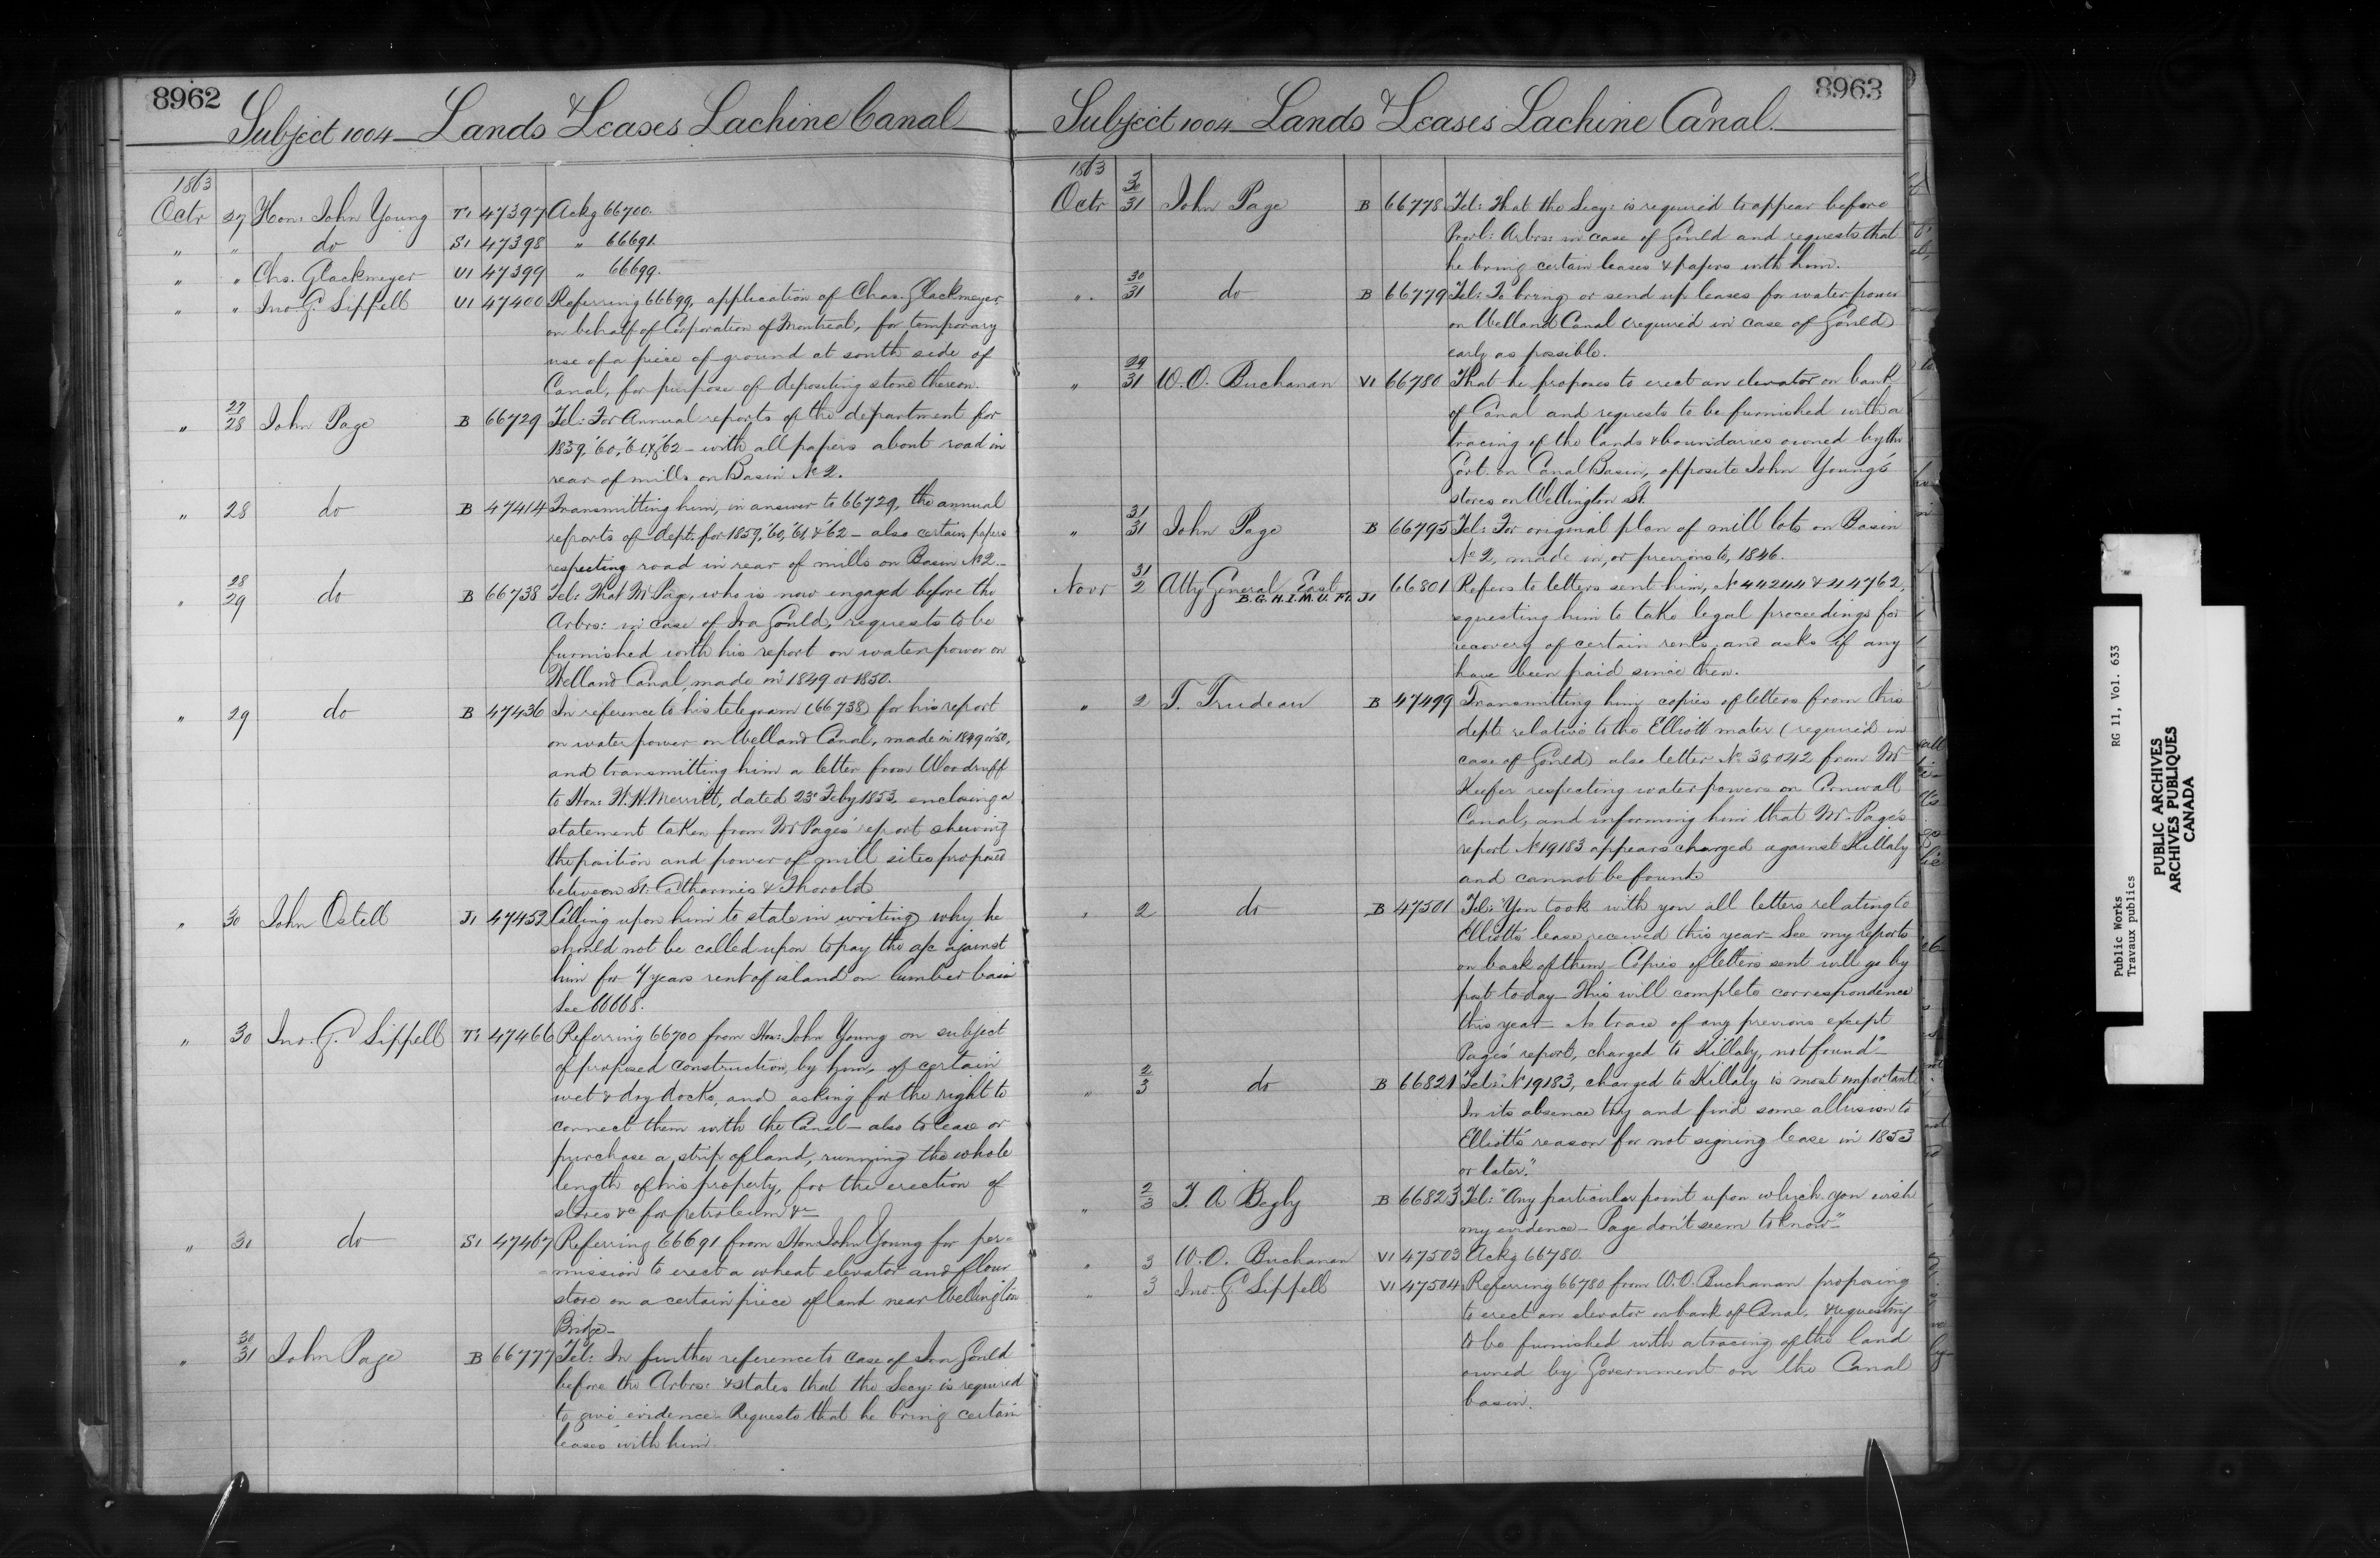 8962
Subject 1004 – Lands & Leases Lachine Canal
1863
Octr 27 Hon: John Young T1 47397 Ackg 66700.
" " do S1 47398 " 66691.
" " Chs. Glackmeyer U1 47399 " 66699.
" " Jno. G. Sippell U1 47400 Referring 66699, application of Chas. Glackmeyer
on behalf of Corporation of Montreal, for temporary
use of a piece of ground at south side of
Canal, for purpose of depositing stone thereon.
" 27/28 John Page B 66729 Tel: For Annual reports of the department for
1859, '60, '61, & '62 – with all papers about road in
rear of mills on Basin No 2.
" 28 do B 47414 Transmitting him, in answer to 66729, the annual
reports of dept. for 1859, '60, '61, & '62 – also certain papers
respecting road in rear of mills on Basin No 2 –
" 28/29 do B 66738 Tel: That Mr Page, who is now engaged before the
Arbrs: in case of Ira Gould, requests to be
furnished with his report on waterpower on
Welland Canal, made in 1849 or 1850.
" 29 do B 47436 In reference to his telegram (66738) for his report
on waterpower on Welland Canal, made in 1849 or '50,
and transmitting him a letter from Woodruff
to Hon: W. H. Merritt, dated 23d Feby 1853, enclosing a
statement taken from Mr Page's report shewing
the position and power of mill sites proposed
between St. Catharines & Thorold
" 30 John Ostell J1 47452 Calling upon him to state in writing why he
should not be called upon to pay the a/c against
him for 7 years rent of island on lumber basin
See 66668.
" 30 Jno. G. Sippell T1 47466 Referring 66700 from Hon: John Young on subject
of proposed construction, by him, of certain
wet & dry docks, and asking for the right to
connect them with the Canal – also to lease or
purchase a strip of land, running the whole
length of his property, for the erection of
stores &c for petroleum &c –
" 30 do S1 47467 Referring 66691 from Hon: John Young for per-
mission to erect a wheat elevator and flour
store on a certain piece of land near Wellington
Bridge –
" 30/31 John Page B 66777 Tel: In further reference to case of Ira Gould
before the Arbrs: & states that the Secy: is required
to give evidence. Requests that he bring certain
leases with him.
8963
Subject 1004 – Lands & Leases Lachine Canal.
1863
Octr 30/31 John Page B 66778 Tel: That the Secy: is required to appear before
Provl: Arbrs: in case of Gould and requests that
he bring certain leases & papers with him.
" 30/31 do B 66779 Tel: To bring or send up leases for water power
on Welland Canal (required in case of Gould)
early as possible.
" 29/31 W. O. Buchanan V1 66780 That he proposes to erect an elevator on bank
of Canal and requests to be furnished with a
tracing of the lands & boundaries owned by the
Govt. on Canal Basin, opposite John Young's
stores on Wellington St.
" 31/31 John Page B 66795 Tel: For original plan of mill lots on Basin
No 2, made in, or previous to, 1846.
Novr 31/2 Atty General East B. G. H. I. M. U. F1. J1 66801 Refers to letters sent him, No 44244 & 44762,
equesting him to take legal proceedings for
recovery of certain rents, and asks if any
have been paid since then.
" 2 T. Trudeau B 47499 Transmitting him copies of letters from this
dept. relative to the Elliott mater (required in
case of Gould) also letter No 36042 from Mr
Keefer respecting water powers on Cornwall
Canal, and informing him that Mr. Page's
report No 19183 appears charged against Killaly
and cannot be found
" 2 do B 47501 Tel: "You took with you all letters relating to
Elliott's lease received this year – See my reports
on back of them – Copies of letters sent will go by
post to-day – This will complete correspondence
this year – No trace of any previous except
Page's report, charged to Killaly, not found" –
" 2/3 do B 66821 Tel: "No 19183, charged to Killaly is most important
In its absence try and find some allusion to
Elliott's reason for not signing lease in 1853
or later."
" 2/3 T. A Begly B 66823 Tel: "Any particular point upon which you wish
my evidence – Page don't seem to know" –
" 3 W. O. Buchanan V1 47503 Ackg 66780.
" 3 Jno. G. Sippell V1 47504 Referring 66780 from W. O. Buchanan proposing
to erect an elevator on bank of Canal, & requesting
to be furnished with a tracing of the land
owned by Government on the Canal
basin.
Public Works RG 11, Vol. 633
Travaux publics
PUBLIC ARCHIVES
ARCHIVES PUBLIQUES
CANADA